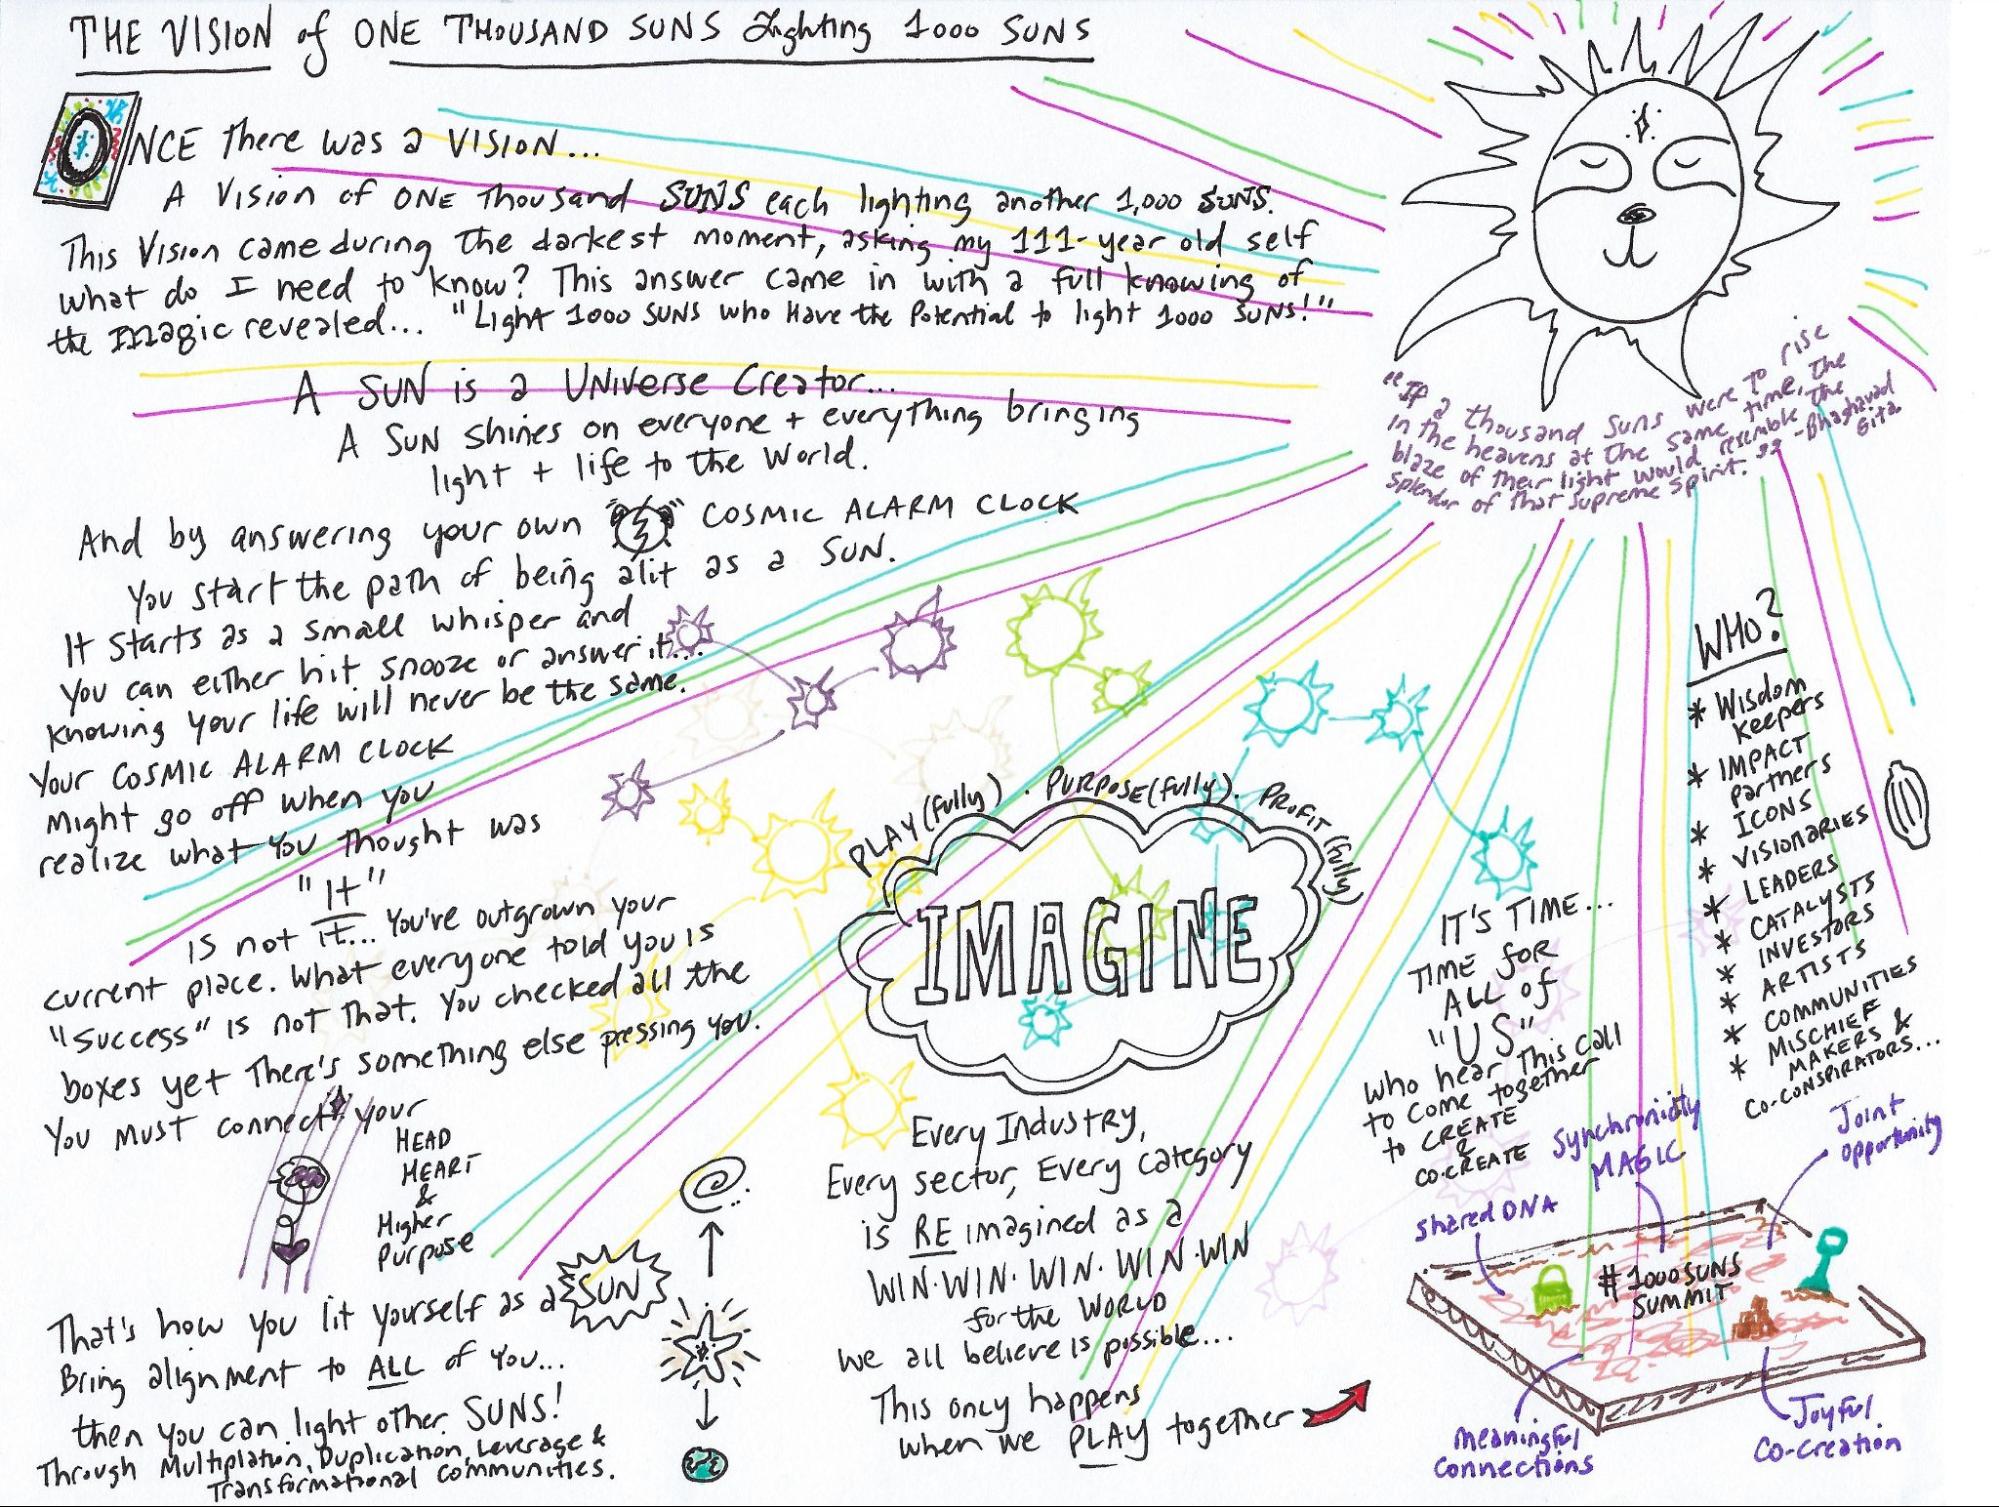 THE VISION of ONE THOUSAND SUNS Lighting 1000 SUNS
ONCE there was a VISION...
A Vision of ONE Thousand SUNS each lighting another 1,000 SUNS.
This Vision came during the darkest moment, asking my 111-year old self
what do I need to know? This answer came in with a full knowing of
the magic revealed... "Light 1000 SUNS who Have the Potential to light 1000 SUNS!"
A SUN is a UNIVERSE Creator...
A SUN shines on everyone + everything bringing
light + life to the World.
And by answering your own COSMIC ALARM CLOCK
You start the path of being alit as a SUN.
It starts as a small whisper and
you can either hit snooze or answer it...
knowing your life will never be the same.
Your COSMIC ALARM CLOCK
Might go off when you
realize what you thought was
"It"
is not it... You've outgrown your
current place. What everyone told you is
"Success" is not that. You checked all the
boxes yet there's something else pressing you.
You must connect your
HEAD
HEART
&
Higher
Purpose
That's how you lit yourself as a SUN
Bring alignment to ALL of You...
then you can light other SUNS!
Through Multiplation, Duplication, Leverage &
Transformational Communities.
PLAY(fully) · PURPOSE(fully) · PROFIT(fully)
IMAGINE
Every Industry,
Every sector, Every category
is RE imagined as a
WIN·WIN·WIN·WIN·WIN
for the WORLD
we all believe is possible...
This only happens
when we PLAY together
"If a thousand suns were to rise
in the heavens at the same time, the
blaze of their light would resemble the
splendor of that supreme spirit." -Bhagavad
Gita
IT'S TIME...
TIME for
ALL of
"US"
who hear this call
to come together
to CREATE
&
CO-CREATE
WHO?
* Wisdom
Keepers
* IMPACT
Partners
* ICONS
* VISIONARIES
* LEADERS
* CATALYSTS
* INVESTORS
* ARTISTS
* COMMUNITIES
* MISCHIEF
MAKERS &
CO-CONSPIRATORS...
Synchronicity
MAGIC
Joint
opportunity
Shared DNA
#1000SUNS
SUMMIT
Meaningful
Connections
Joyful
Co-Creation